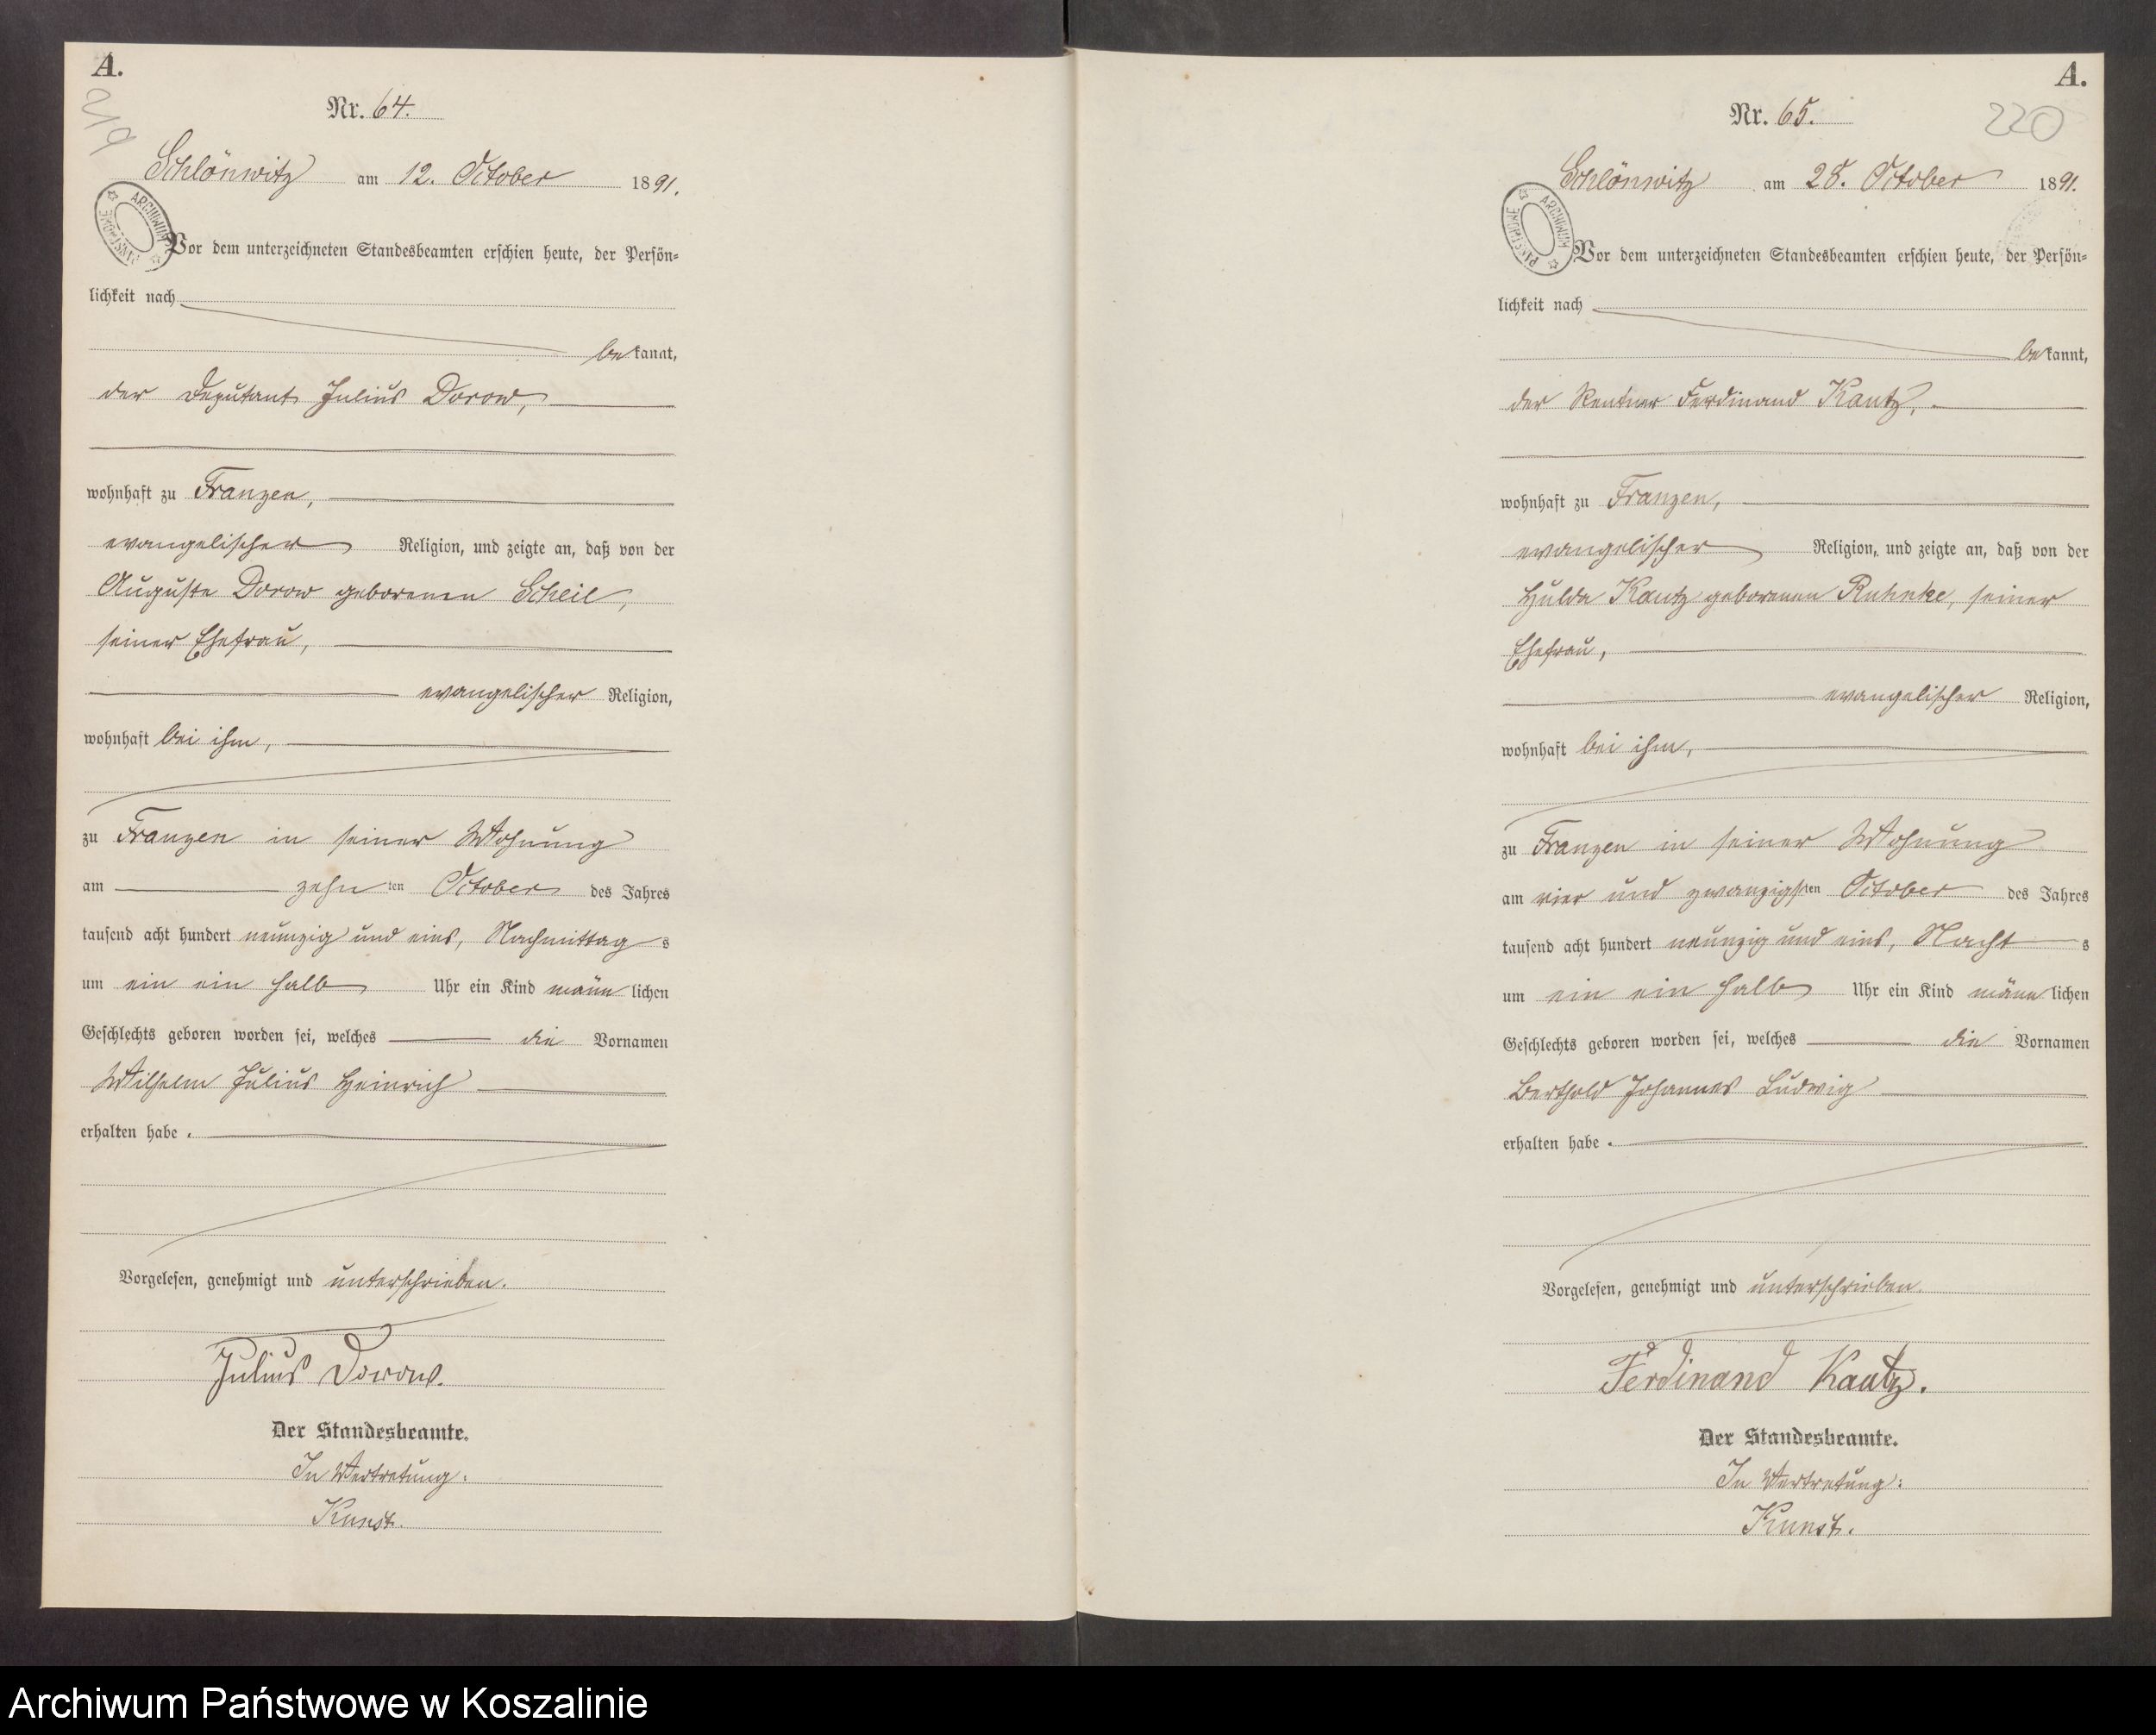 A.
219
Nr. 64.
Schlönwitz am 12. October 1891.
ARCHIWUM PAŃSTWOWE
Vor dem unterzeichneten Standesbeamten erschien heute, der Persön-
lichkeit nach
bekannt,
der Deputant Julius Dorow,
wohnhaft zu Franzen,
evangelischer Religion, und zeigte an, daß von der
Auguste Dorow geborenen Scheil,
seiner Ehefrau,
evangelischer Religion,
wohnhaft bei ihm,
zu Franzen in seiner Wohnung
am zehnten October des Jahres
tausend acht hundert neunzig und eins, Nachmittags
um ein ein halb Uhr ein Kind männlichen
Geschlechts geboren worden sei, welches die Vornamen
Wilhelm Julius Heinrich
erhalten habe.
Vorgelesen, genehmigt und unterschrieben.
Julius Dorow.
Der Standesbeamte.
In Vertretung:
Kunst.
A.
220
Nr. 65.
Schlönwitz am 28. October 1891.
ARCHIWUM PAŃSTWOWE
Vor dem unterzeichneten Standesbeamten erschien heute, der Persön-
lichkeit nach
bekannt,
der Rentner Ferdinand Kautz,
wohnhaft zu Franzen,
evangelischer Religion, und zeigte an, daß von der
Hulda Kautz geborenen Ruhnke, seiner
Ehefrau,
evangelischer Religion,
wohnhaft bei ihm,
zu Franzen in seiner Wohnung
am vier und zwanzigsten October des Jahres
tausend acht hundert neunzig und eins, Nachts
um ein ein halb Uhr ein Kind männlichen
Geschlechts geboren worden sei, welches die Vornamen
Berthold Johannes Ludwig
erhalten habe.
Vorgelesen, genehmigt und unterschrieben.
Ferdinand Kautz.
Der Standesbeamte.
In Vertretung:
Kunst.
Archiwum Państwowe w Koszalinie